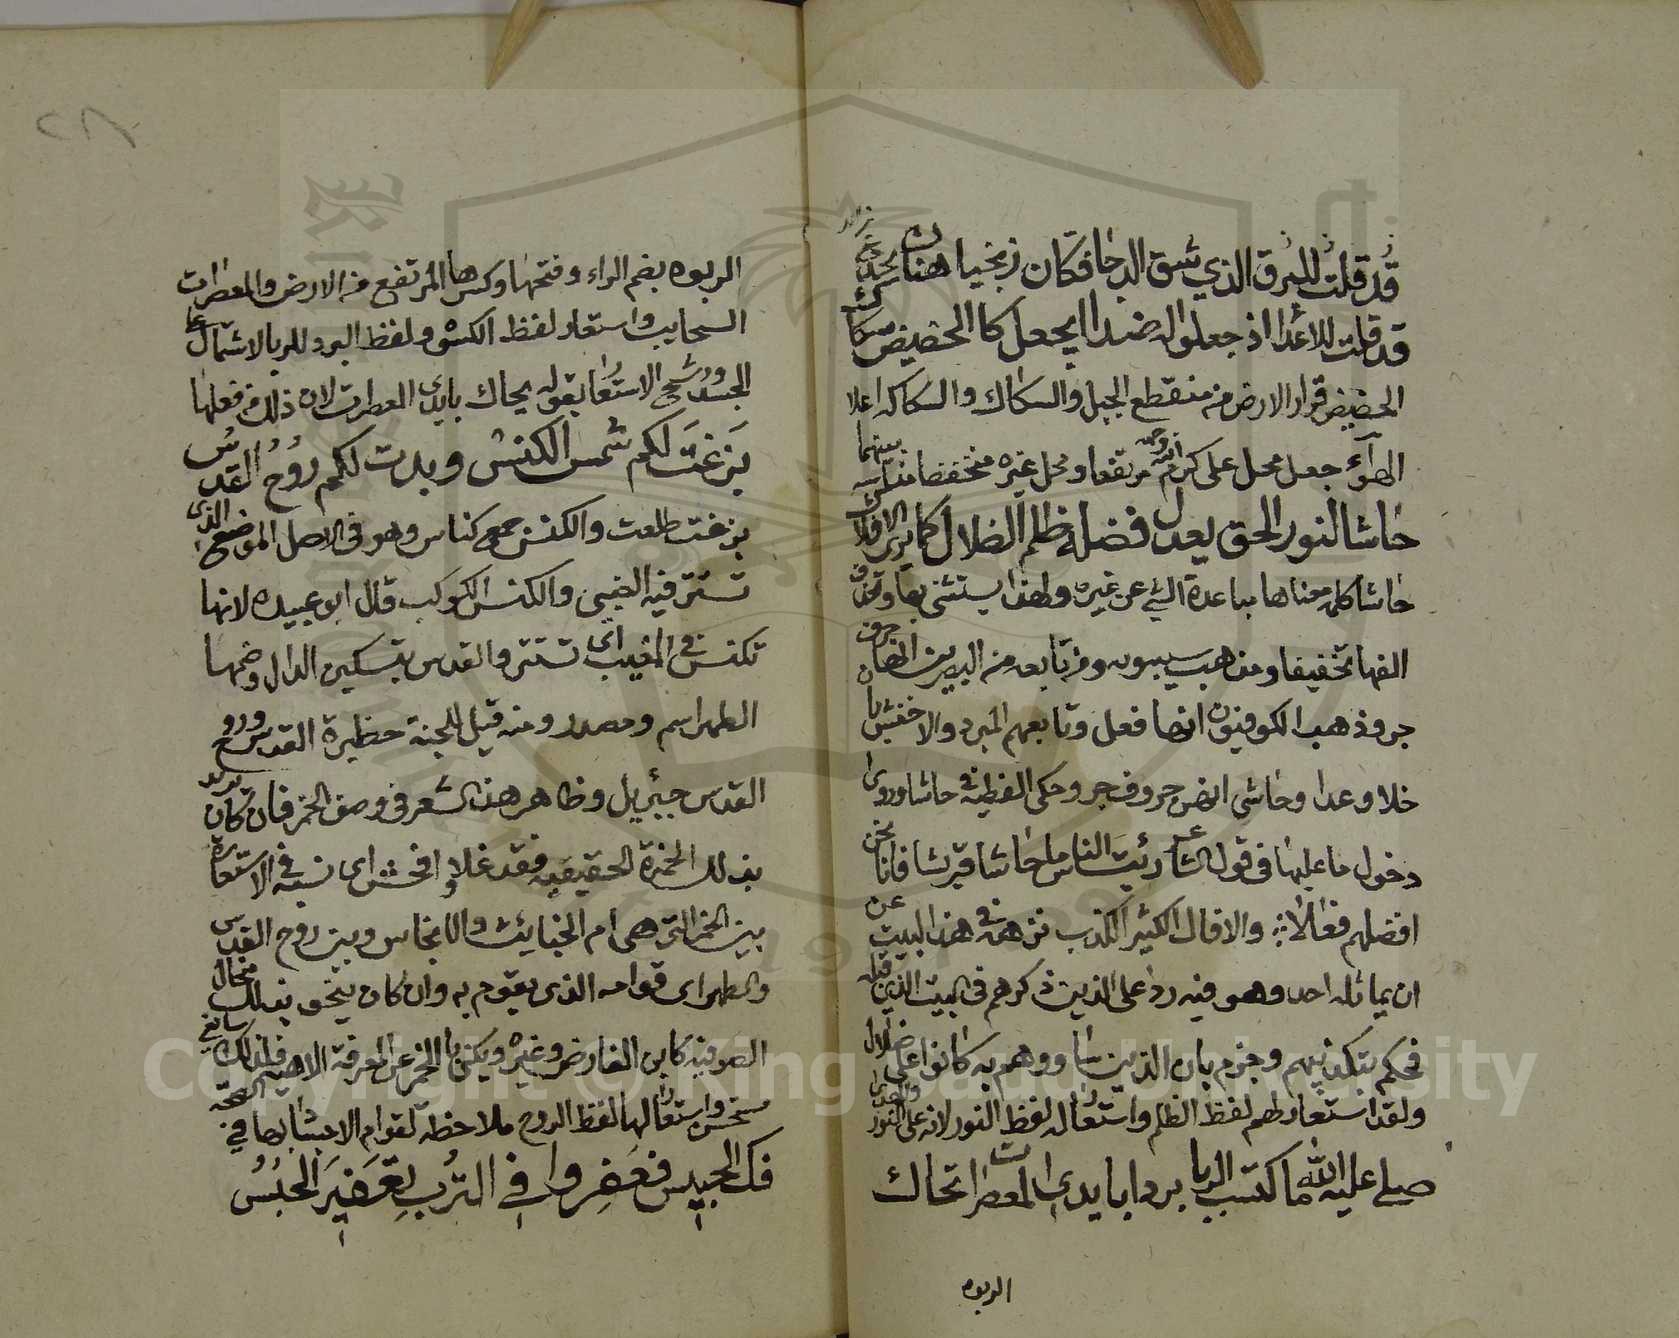 قد قلت للبرق الذي شق الدجا فكان زنجيا هنا
قد قلت للأعدا اذ جعلوا له ضدا ايجعل كالحضيض سكاك
الحضيض قرار الارض من منقطع الجبل والسكاك والسكاكه اعلا
الهوآء جعل محل على كرم مرتفعا ومحل غيره منخفضا
حاشا لنور الحق يعدل فضله ظلم الضلال كما يرى الافلاك
حاشا كلمة معناها مباعدة الشي عن غيره ولهذا يستثنى بها وتحذف
الفها تخفيفا ومذهب سيبويه ومن تابعه من البصريين انها حرف
جر وذهب الكوفيون انها فعل وتابعهم المبرد والاخفش
خلا وعدا وحاشى ايض حروف جر وحكى القطيفي حاشا وروى
دخول ما عليها في قول الشاعر رئيت الناس ما حاشا قريشا فانا نحن
افضلهم فعالا والافاك الكثير الكذب نزهه في هذا البيت عن
ان يماثله احد وهو فيه رد على الذين ذكرهم في البيت الذي قبله
فحكم بتكذيبهم وجزم بان الذين ساووهم به كانوا على ضلال
ولقد استعار لهم لفظ الظلم واستعار له لفظ النور لانه على النور والهدى
صلى عليه الله ما كتب الربا بردا بايدى المعصرات تحاك
الربوه
الربوه بضم الراء وفتحها وكسرها المرتفع من الارض والمعصرات
السحايب واستعار لفظ الكسو ولفظ البرد للربا لاشتمال
الجسد ورشح الاستعا بقوله يحاك بايدى المعصرات لان ذلك من فعلها
بزغت لكم شمس الكنس وبدت لكم روح القدس
بزغت طلعت والكنس جمع كناس وهو في الاصل الموضع الذي
تستتر فيه الظبى والكنس الكوكب قال ابو عبيده لانها
تكنس في المغيب اى تستتر والقدس بتسكين الدال وضمها
الطهر اسم ومصدر ومنه قيل للجنة حظيرة القدس وروح
القدس جبرئيل وظاهر هذا الشعر في وصف الخمر فان كان يريد
بذلك الخمرة الحقيقيه فقد غلا وافحش اى نسبه في الاستعارة
بين الخمر التى هي ام الخبائث والانجاس وبين روح القدس
والطهر اى قوامه الذى يقوم به وان كان ينحو بذلك منحا
الصوفيه كابن الفارض وغيره ويكنى بالخمر عن المعرفة الالهيه فلذلك سايغ
مستحسن واستعار لها لفظ الروح ملاحظه لقوام الاجساد بها في
فك الحبيس فعفروا في الترب تعفير الحبس
٢٨
Copyright © King Saud University